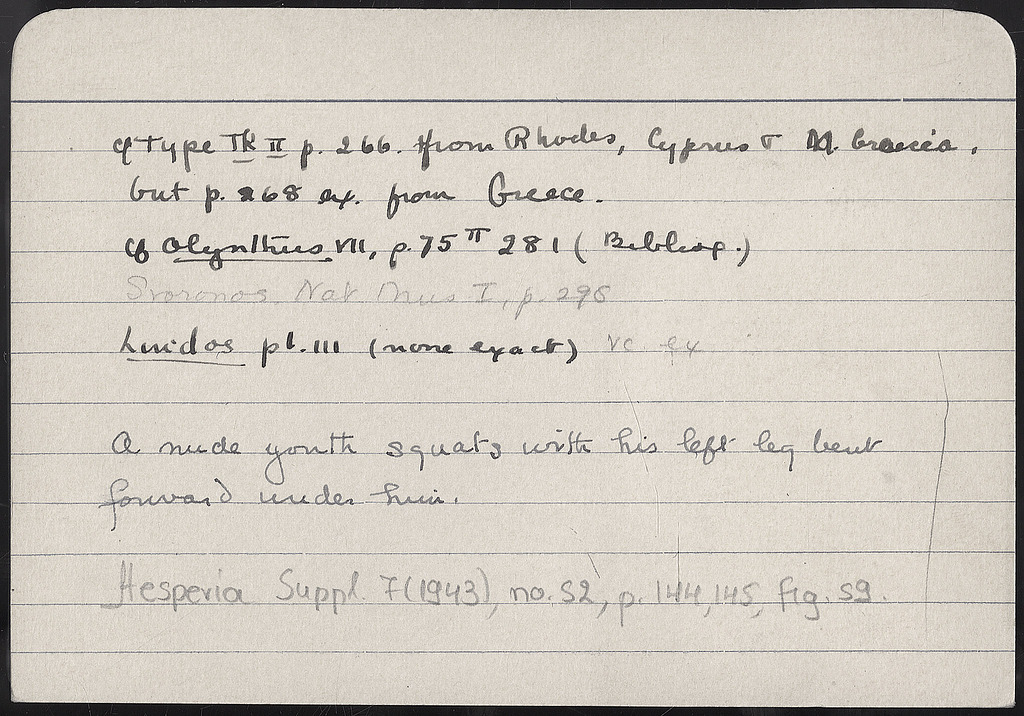 cf Type TK II p. 266. from Rhodes, Cyprus & M. Graecia,
but p. 268 ex. from Greece.
cf Olynthus VII, p. 75 π 281 (Bibliog.)
Svoronos. Nat Mus I, p. 296
Lindos pl. III (none exact) vc. ex
A nude youth squats with his left leg bent
forward under him.
Hesperia Suppl. 7(1943), no. 52, p. 144,145, fig. 59.